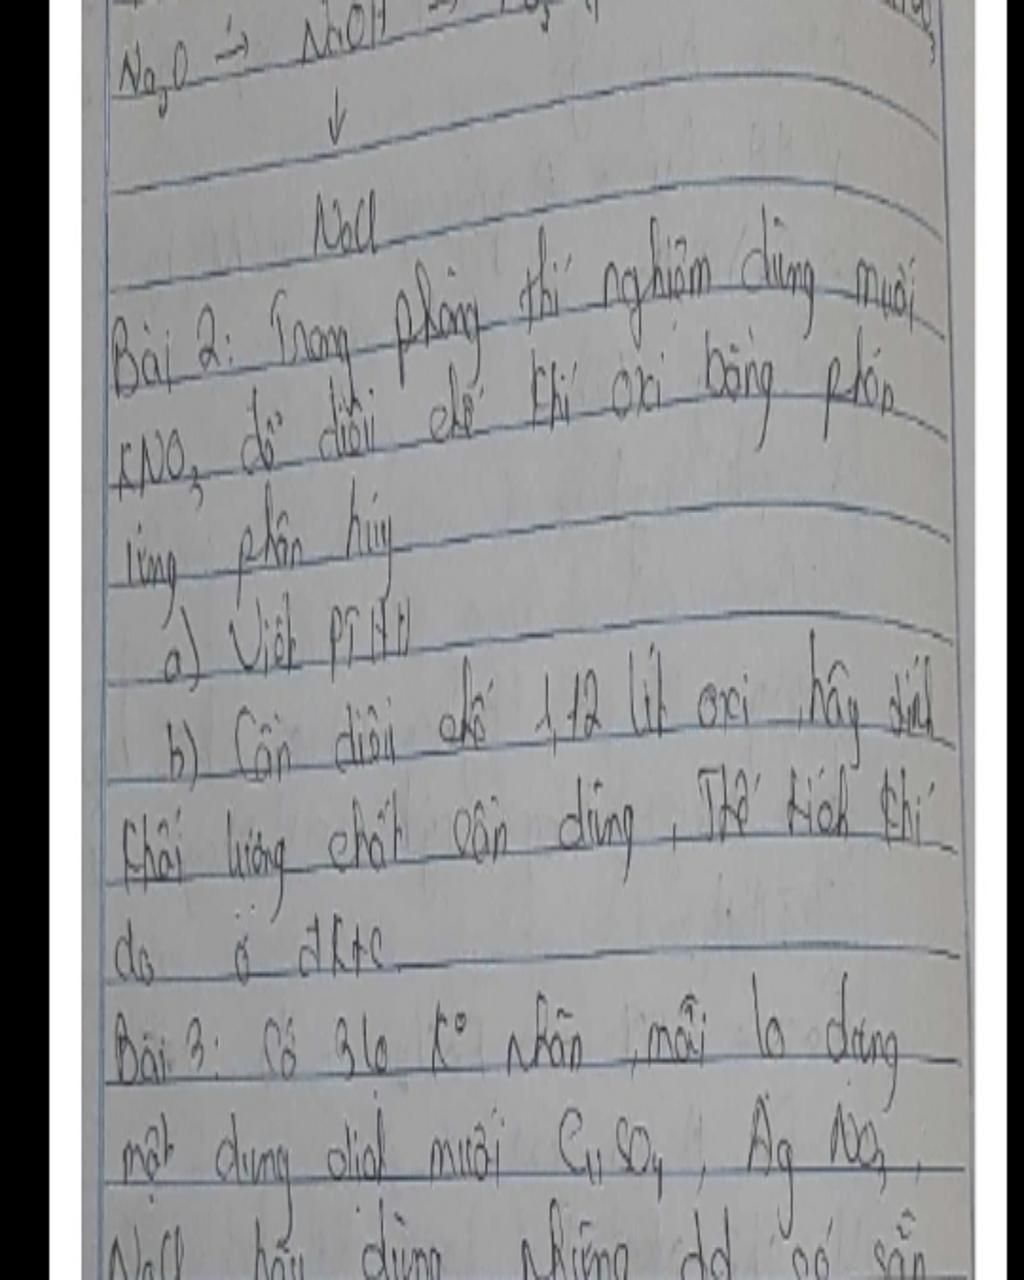 Na₂O → NaOH →
↓
NaCl
Bài 2: Trong phòng thí nghiệm dùng muối
KNO₃ để điều chế khí oxi bằng phản
ứng phân hủy
a) Viết PTHH
b) Cần điều chế 1,12 lít oxi, hãy tính
khối lượng chất cần dùng, Thể tích khí
đo ở đktc
Bài 3: Có 3 lọ k° nhãn, mỗi lọ đựng
một dung dịch muối CuSO₄, AgNO₃,
NaCl hãy dùng những dd có sẵn